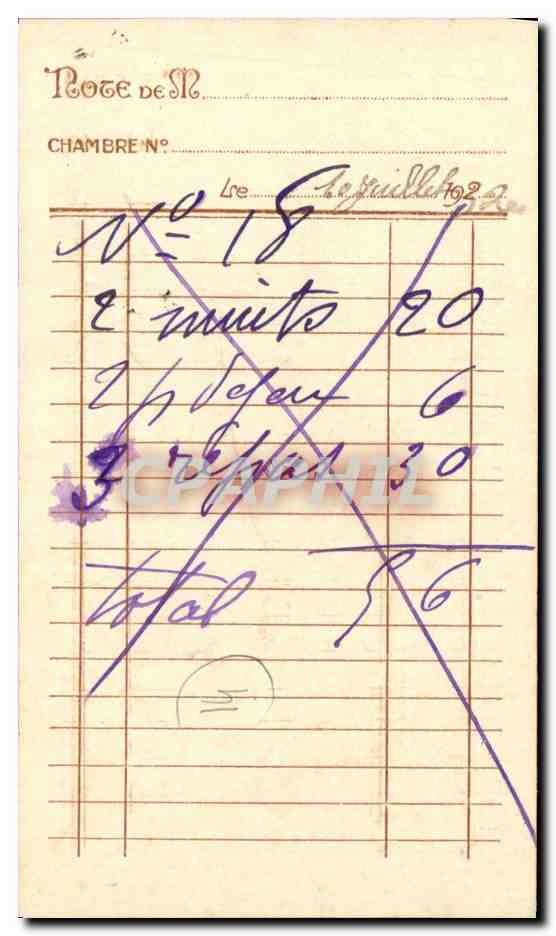 NOTE DE M
CHAMBRE No
Le 10 Juillet 192
No 18
2 nuits 20
2 p dejeu 6
3 repas 30
CPAPHIL
total 56